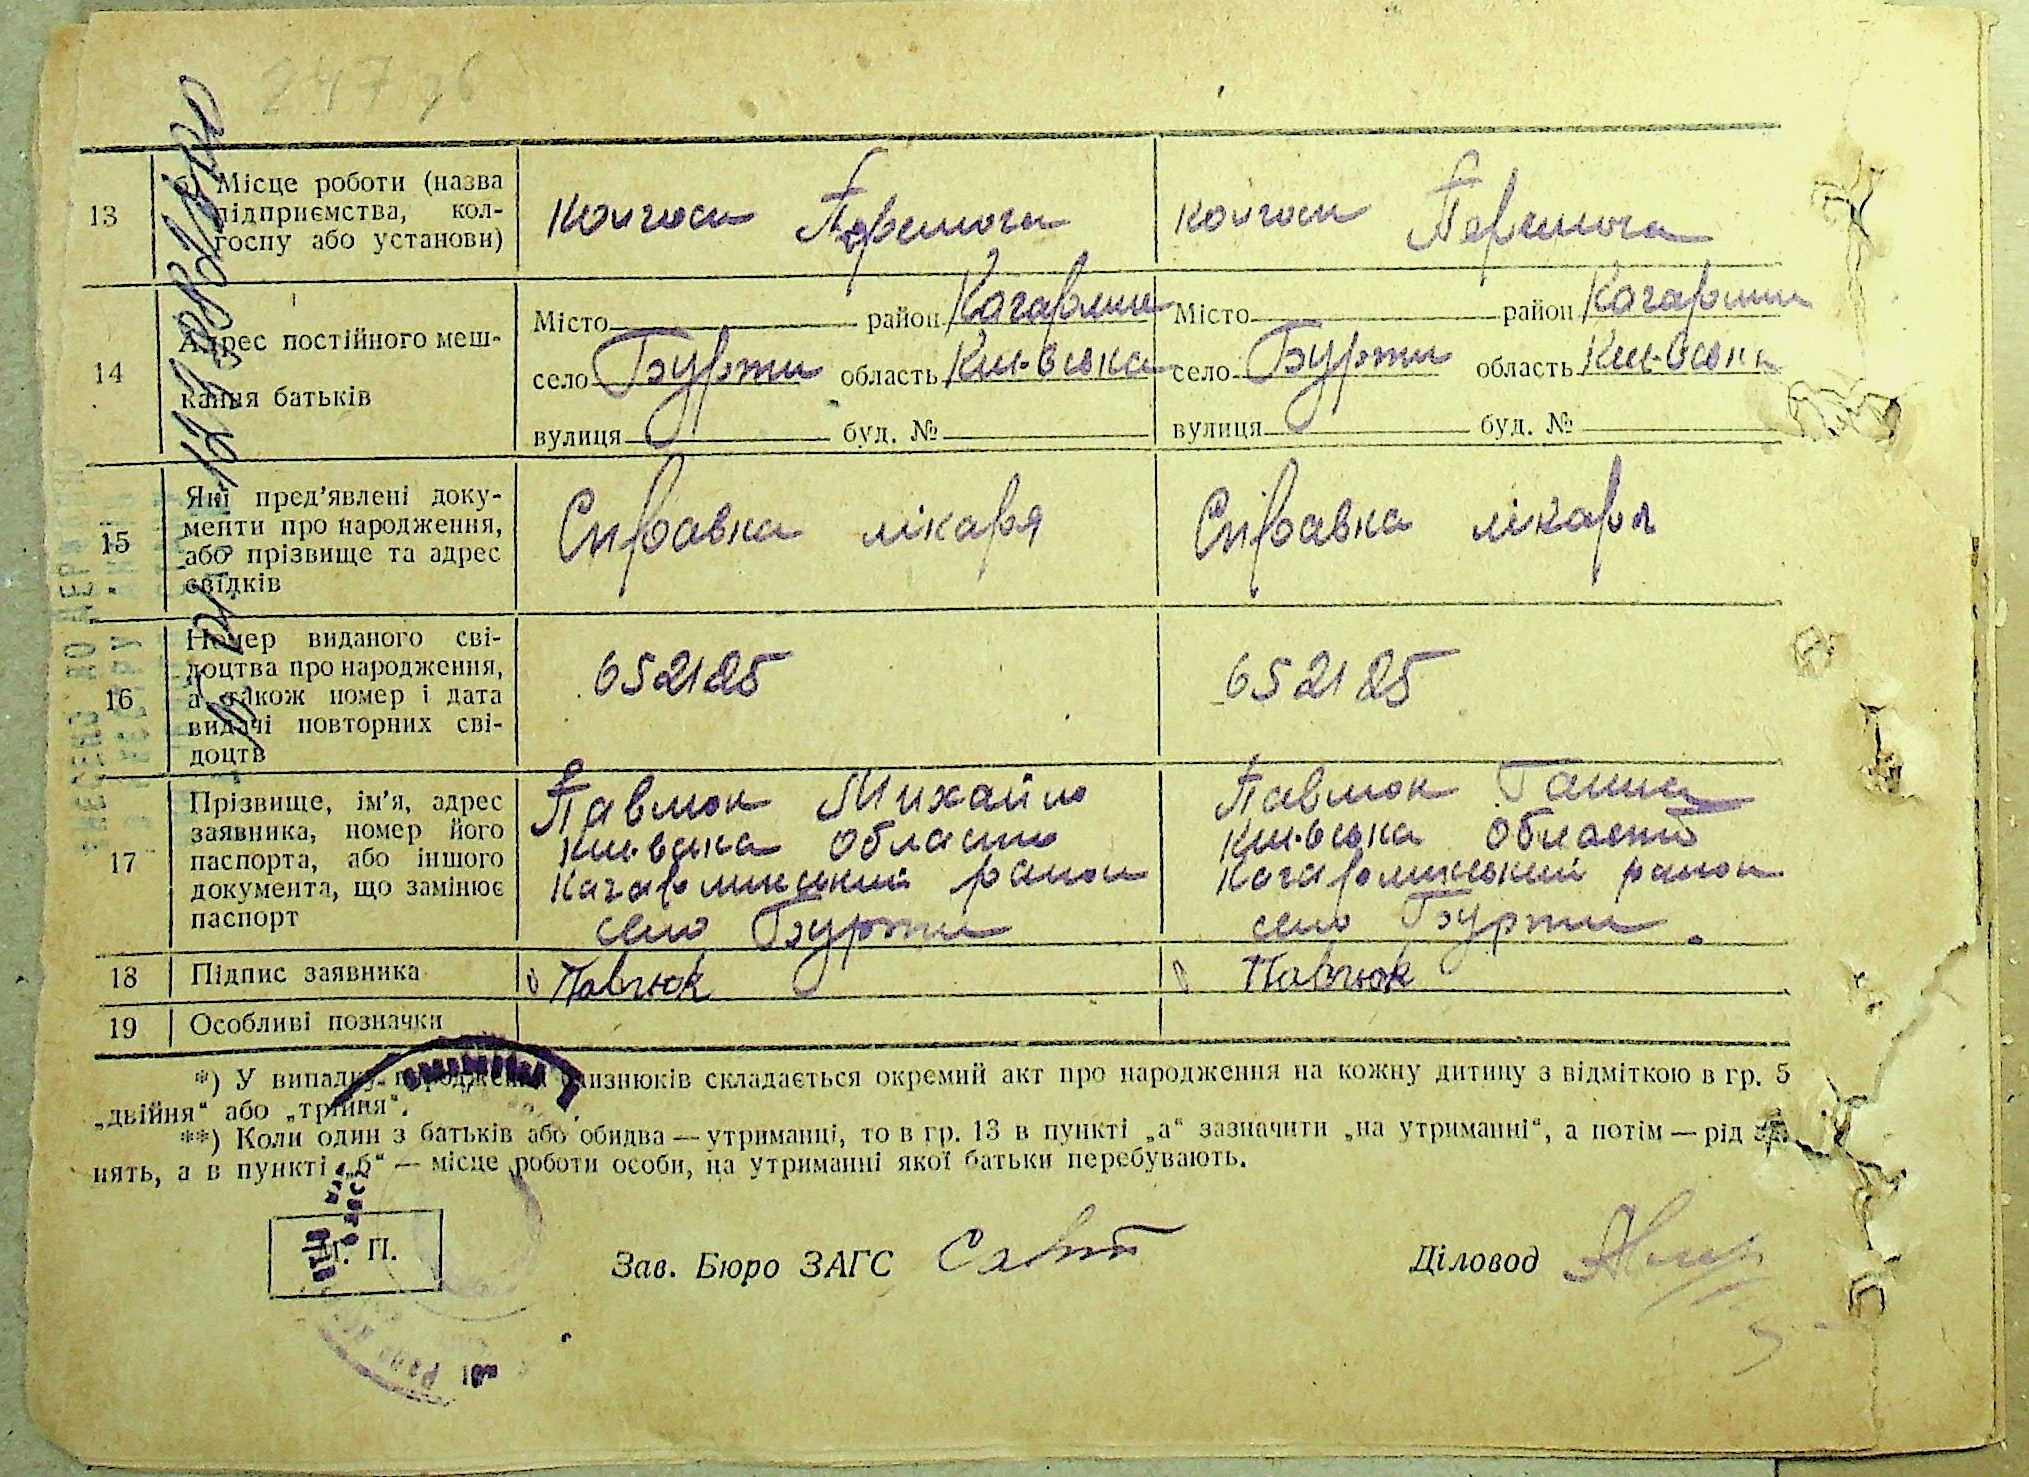 247 зб
13
б) Місце роботи (назва
підприємства, кол-
госпу або установи)
колгосп Перемога
колгосп Перемога
14
Адрес постійного меш-
кання батьків
Місто район Кагарлик
село Бурти область Київська
вулиця буд. №
Місто район Кагарлик
село Бурти область Київська
вулиця буд. №
15
Які пред'явлені доку-
менти про народження,
або прізвище та адрес
свідків
Справка лікаря
Справка лікаря
16
Номер виданого сві-
доцтва про народження,
а також номер і дата
видачі повторних сві-
доцтв
652125
652125
17
Прізвище, ім'я, адрес
заявника, номер його
паспорта, або іншого
документа, що замінює
паспорт
Павлюк Михайло
Київська область
Кагарлинський район
село Бурти
Павлюк Ганна
Київська область
Кагарлинський район
село Бурти.
18
Підпис заявника
Павлюк
Павлюк
19
Особливі позначки
*) У випадку народження близнюків складається окремий акт про народження на кожну дитину з відміткою в гр. 5
„двійня“ або „трійня“.
**) Коли один з батьків або обидва — утриманці, то в гр. 13 в пункті „а“ зазначити „на утриманні“, а потім — рід за-
нять, а в пункті „б“ — місце роботи особи, на утриманні якої батьки перебувають.
М. П.
Зав. Бюро ЗАГС
Діловод